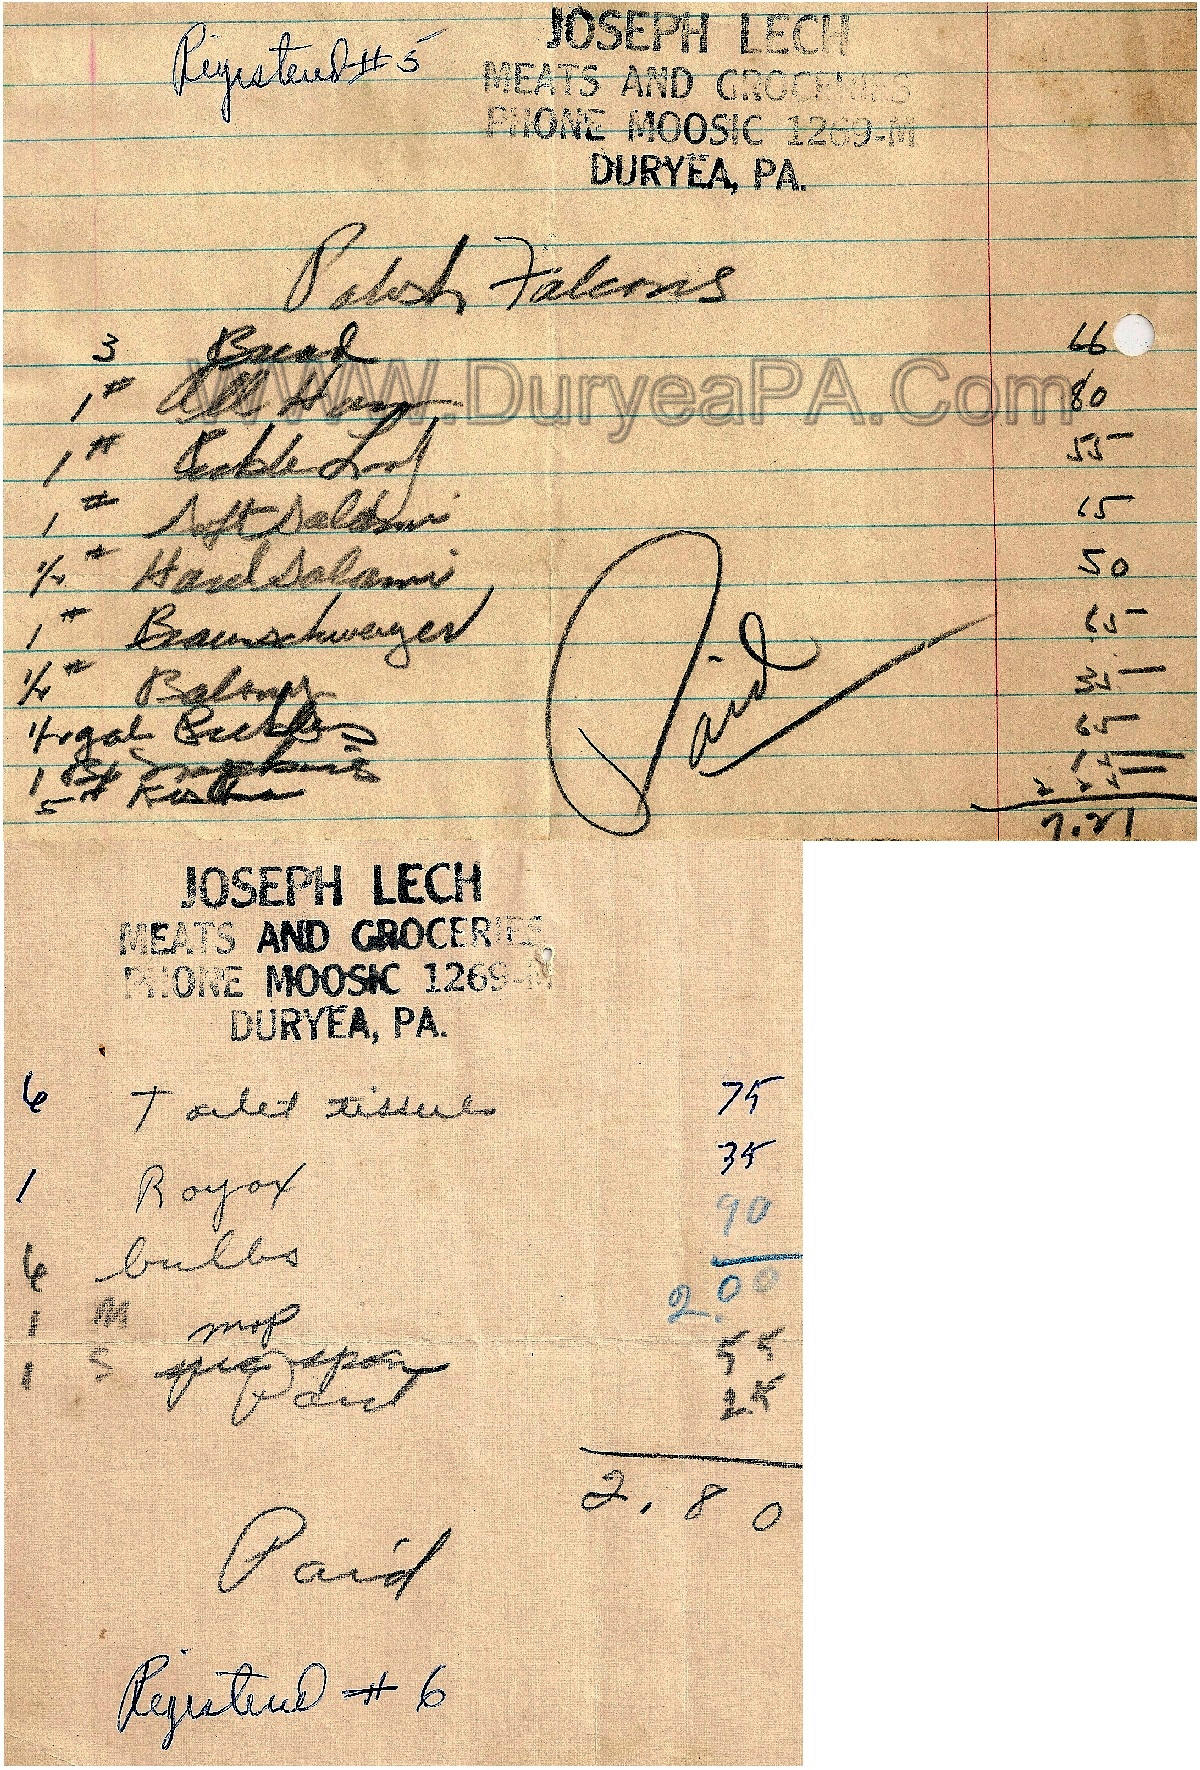 Registered # 5
JOSEPH LECH
MEATS AND GROCERIES
PHONE MOOSIC 1269-M
DURYEA, PA.
Polish Falcons
3 Bread 66
www.DuryeaPA.Com
1# All Ham 80
1# Pickle Loaf 55
1# Soft Salami 65
1/2# Hard Salami 50
1# Braunschweiger 65
1/2# 35
1/2 gal Pickles 65
1 15
5# 2 25
7.21
Paid
JOSEPH LECH
MEATS AND GROCERIES
PHONE MOOSIC 1269-M
DURYEA, PA.
6 Toilet tissue 75
1 Royox 35
6 bulbs 90
2.00
1 M mop 55
1 S 25
Paid
2.80
Paid
Registered # 6